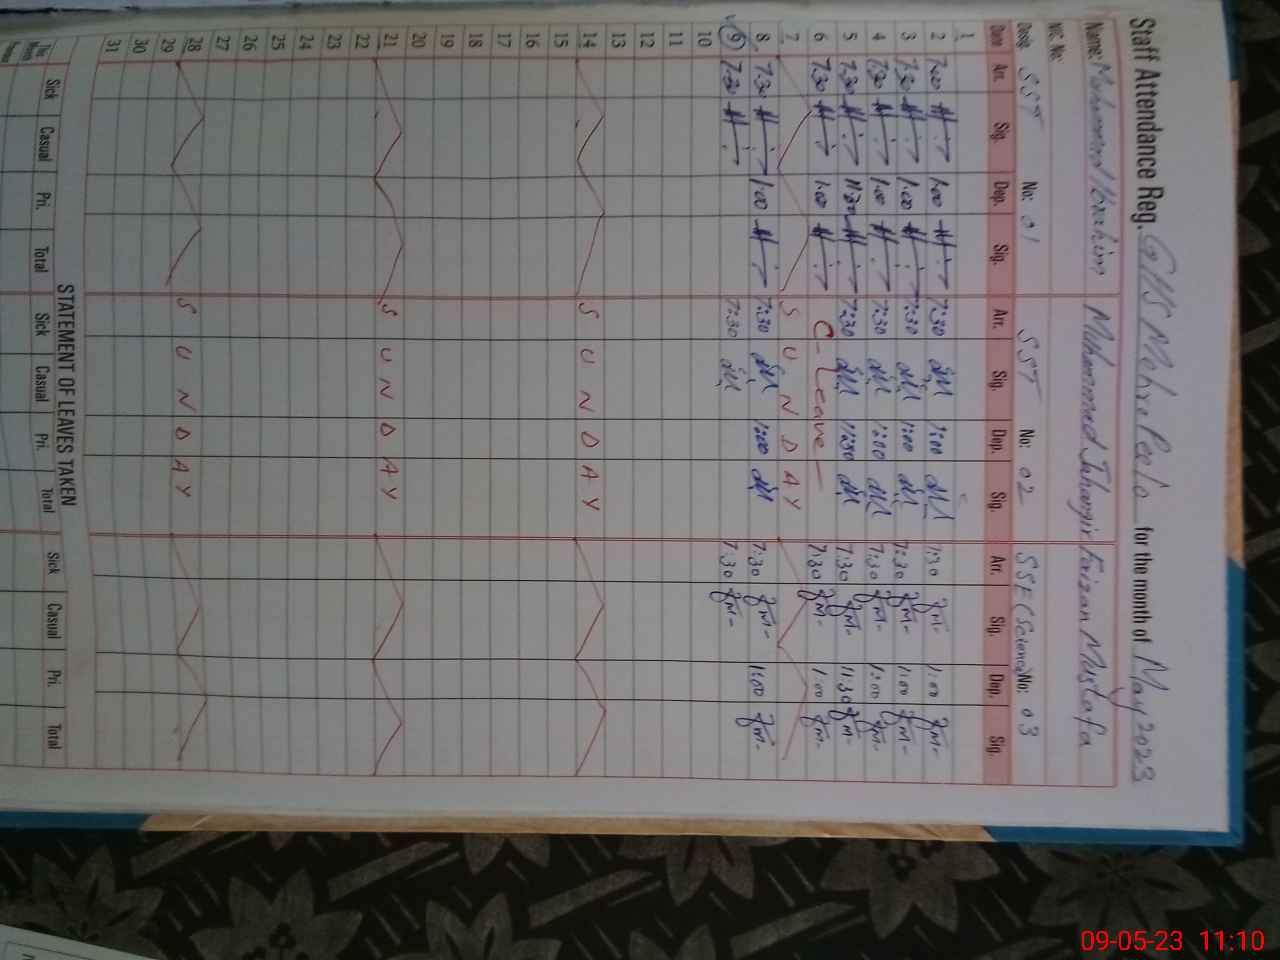 Staff Attendance Reg. GHS Mehra Peelo for the month of May 2023
Name: Muhammad Ibrahim Muhammad Jahangir Faizan Mustafa
NIC. No:
Desig. SST No: 01 SST No: 02 SSE (Science) No: 03
Date Arr. Sig. Dep. Sig. Arr. Sig. Dep. Sig. Arr. Sig. Dep. Sig.
1
2 7:00 1:00 7:30 1:00 7:30 1:00
3 7:30 1:00 7:30 1:00 7:30 1:00
4 7:30 1:00 7:30 1:00 7:30 1:00
5 7:30 11:30 7:30 11:30 7:30 11:30
6 7:30 1:00 C-Leave 7:30 1:00
7 SUNDAY
8 7:30 1:00 7:30 1:00 7:30 1:00
9 7:30 7:30 7:30
10
11
12
13
14 SUNDAY
15
16
17
18
19
20
21 SUNDAY
22
23
24
25
26
27
28 SUNDAY
29
30
31
STATEMENT OF LEAVES TAKEN
Sick Casual Pri. Total Sick Casual Pri. Total Sick Casual Pri. Total
09-05-23 11:10